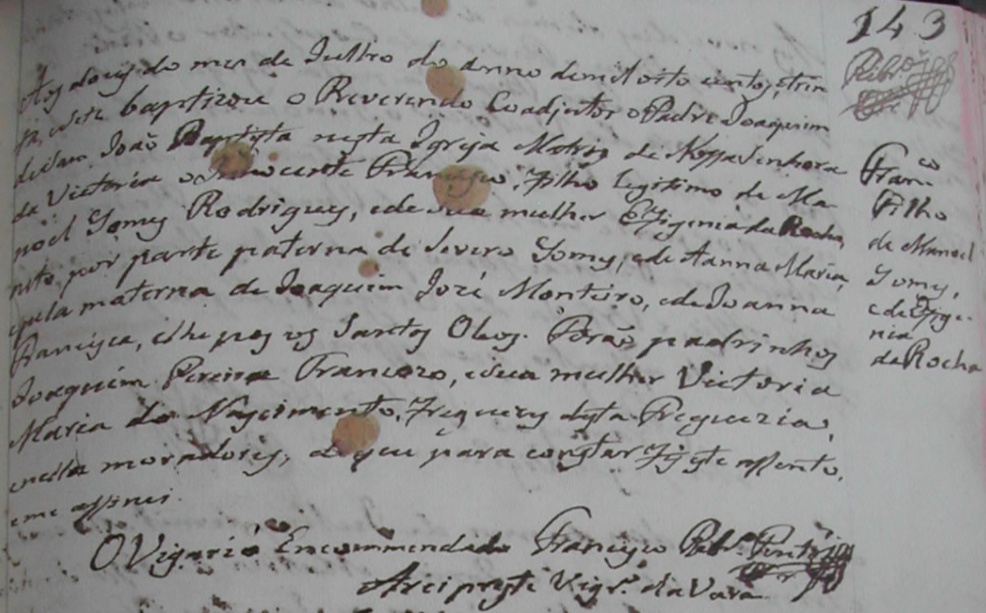 143
Aos dous do mes de Julho do anno de mil oito centos, e trin
ta, e sete baptizou o Reverendo Coadjutor o Padre Joaquim
de Sam João Baptista nesta Igreja Matriz de Nossa Senhora
da Victoria o Innocente Francisco, Filho legitimo de Ma
noel Gomes Rodrigues, e de sua mulher Efigenia da Rocha,
neto por parte paterna de Severo Gomes, e de Anna Maria,
e pela materna de Joaquim José Monteiro, e de Joanna
Francisca, e lhe pos os Santos Oleos. Forão padrinhos
Joaquim Pereira Francozo, e sua mulher Victoria
Maria do Nascimento, Freguezes desta Freguezia,
e nella moradores, do que para constar Fiz este assento,
e me assinei.
O Vigario Encommendado Francisco Rebr.º
Arcipreste Vigr.º da Vara
Fran.co
Filho
de Manoel
Gomes,
e de Efige-
nia
da Rocha